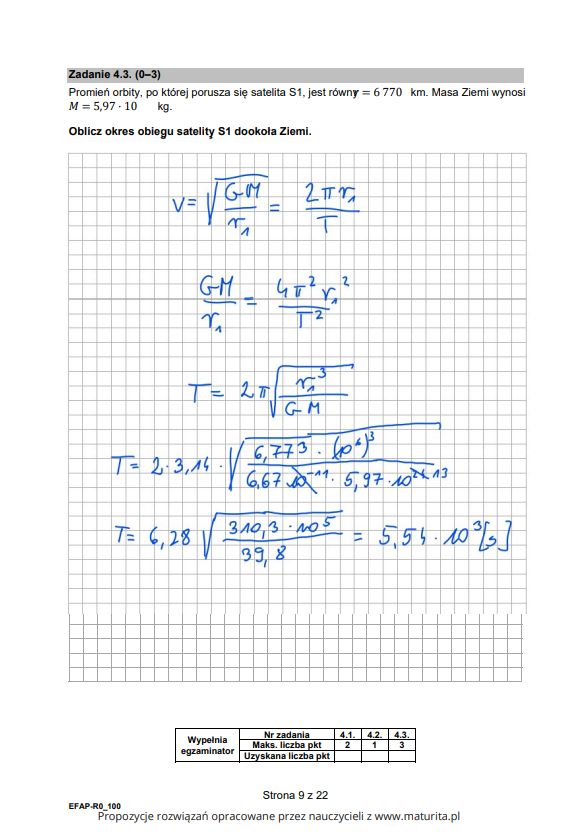 Zadanie 4.3. (0–3)
Promień orbity, po której porusza się satelita S1, jest równy r = 6 770 km. Masa Ziemi wynosi
M = 5,97 · 10 kg.
Oblicz okres obiegu satelity S1 dookoła Ziemi.
v = √(GM/r₁) = 2πr₁/T
GM/r₁ = 4π²r₁²/T²
T = 2π√(r₁³/GM)
T = 2·3,14 · √(6,773 · (10⁶)³ / 6,67 10⁻¹¹ · 5,97 · 10²⁴ 13)
T = 6,28 √(310,3 · 10⁵ / 39,8) = 5,54 · 10³ [s]
Wypełnia egzaminator
Nr zadania 4.1. 4.2. 4.3.
Maks. liczba pkt 2 1 3
Uzyskana liczba pkt
Strona 9 z 22
EFAP-R0_100
Propozycje rozwiązań opracowane przez nauczycieli z www.maturita.pl